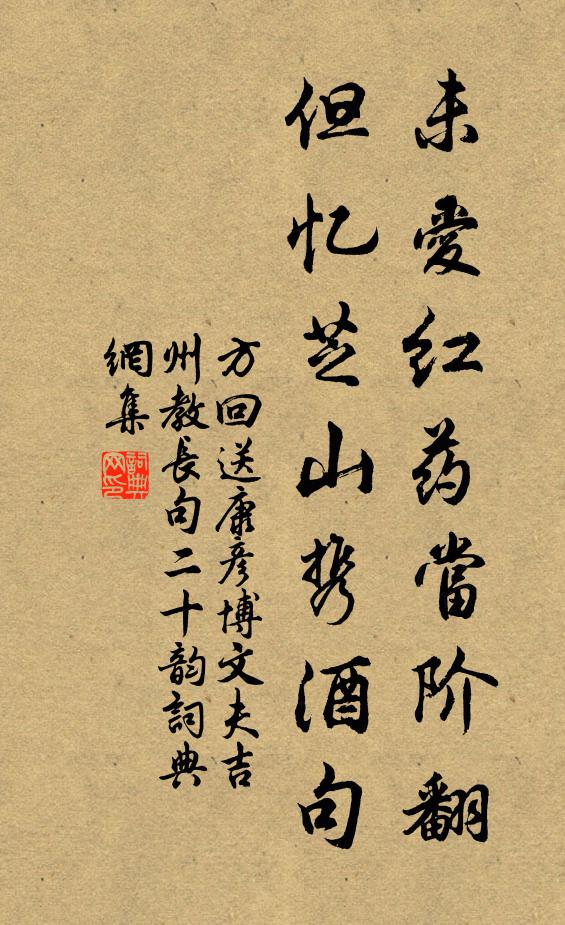 未愛红药當阶翻
但忆芝山携酒句
方回送康彦博文夫吉
州教长句二十韵詞典
網集
詞典
网印